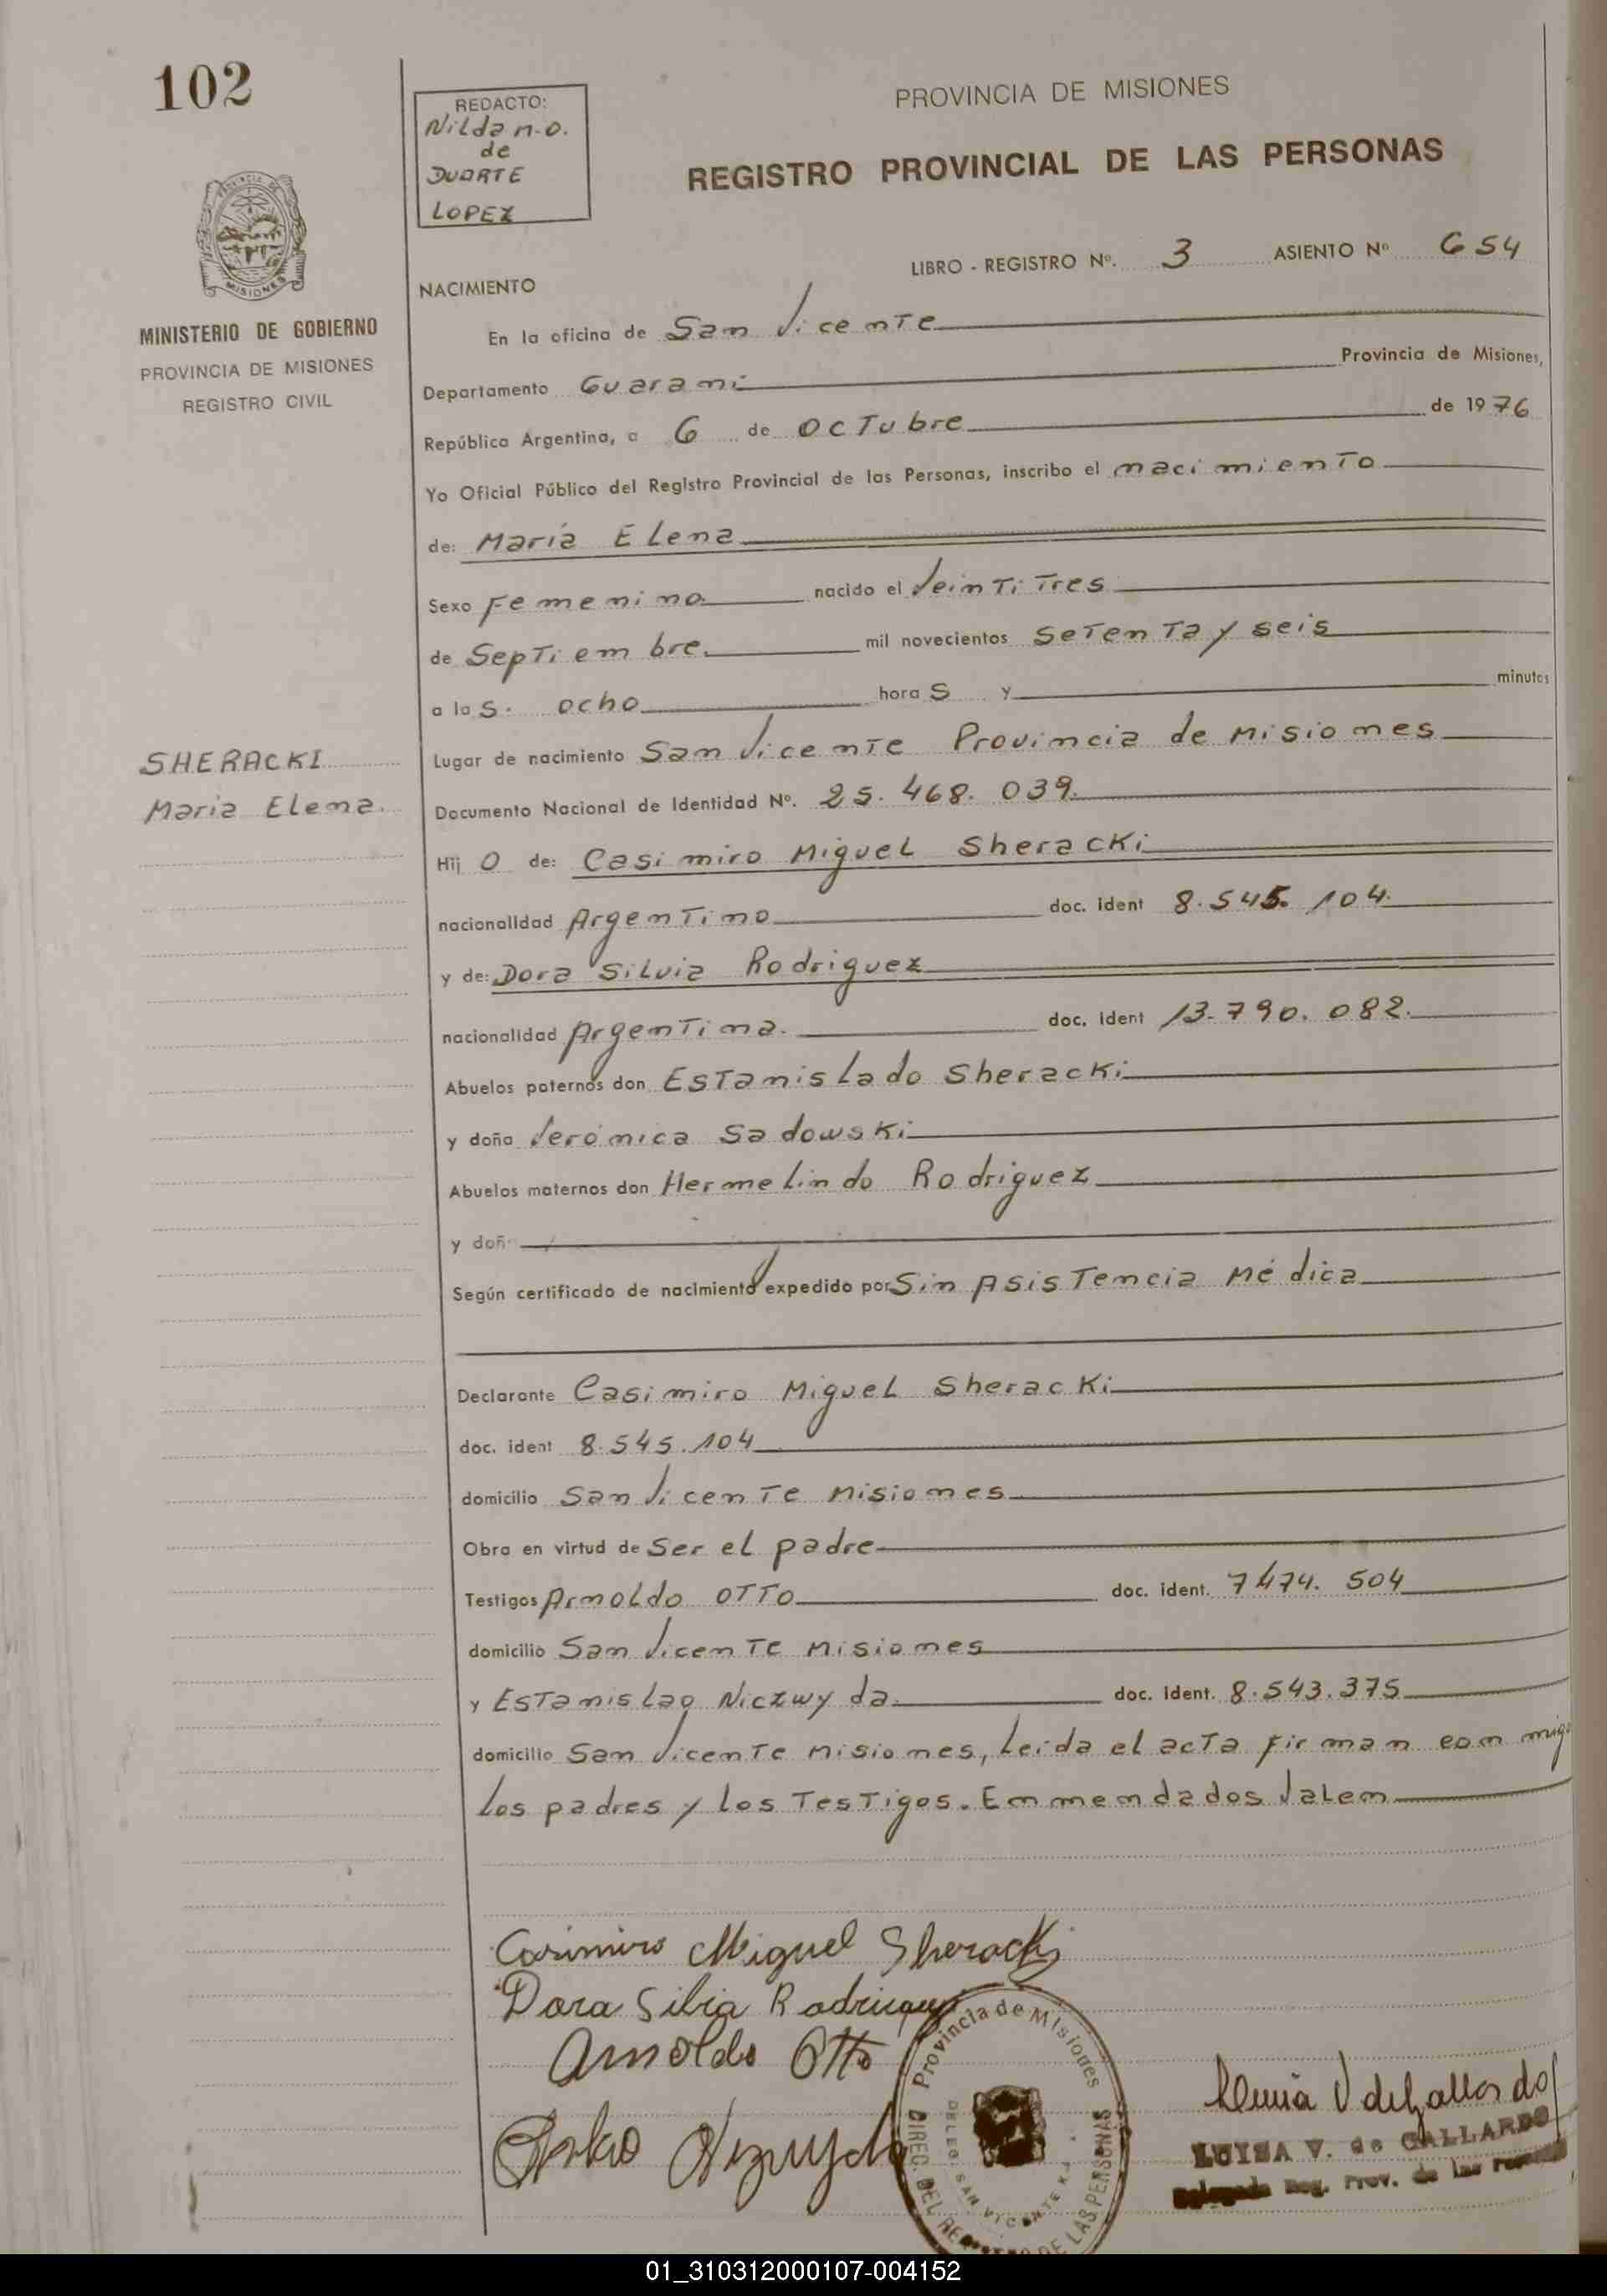 102
REDACTO:
Nilda M.O.
de
DUARTE
LOPEZ
PROVINCIA DE MISIONES
REGISTRO PROVINCIAL DE LAS PERSONAS
PROVINCIA DE
MISIONES
MINISTERIO DE GOBIERNO
PROVINCIA DE MISIONES
REGISTRO CIVIL
LIBRO - REGISTRO Nº. 3 ASIENTO Nº 654
NACIMIENTO
En la oficina de San Vicente
Departamento Guaraní Provincia de Misiones,
República Argentina, a 6 de OcTubre de 1976
Yo Oficial Público del Registro Provincial de las Personas, inscribo el nacimienTo
de: María Elena
Sexo Femenino nacido el VeinTiTres
de SepTiembre. mil novecientos SeTenTa y seis
a las. ocho horas y minutos
SHERACKI
Maria Elena.
Lugar de nacimiento San VicenTe Provincia de Misiones
Documento Nacional de Identidad Nº. 25.468.039.
Hij o de: Casimiro Miguel Sheracki
nacionalidad ArgenTino doc. ident 8.545.104.
y de: Dora Silvia Rodriguez
nacionalidad ArgenTina. doc. ident 13.790.082.
Abuelos paternos don EsTanislado Sheracki
y doña Verónica Sadowski
Abuelos maternos don Hermelindo Rodriguez
y doñ
Según certificado de nacimiento expedido por Sin AsisTencia Médica
Declarante Casimiro Miguel Sheracki
doc. ident 8.545.104
domicilio San VicenTe Misiones
Obra en virtud de Ser el padre
Testigos Arnoldo OTTo doc. ident. 7474.504
domicilio San VicenTe Misiones
y EsTanislao Niczwyda doc. ident. 8.543.375
domicilio San VicenTe Misiones, Leida el acTa firman conmigo
los padres y los TesTigos. Enmendados Valen
Casimiro Miguel Sheracki
Dora Silvia Rodriguez
Arnoldo Otto
Provincia de Misiones
DIREC. DEL REGISTRO DE LAS PERSONAS
DELEG. SAN VICENTE
LUISA V. de GALLARDO
Delegada Reg. Prov. de las Personas
01_310312000107-004152